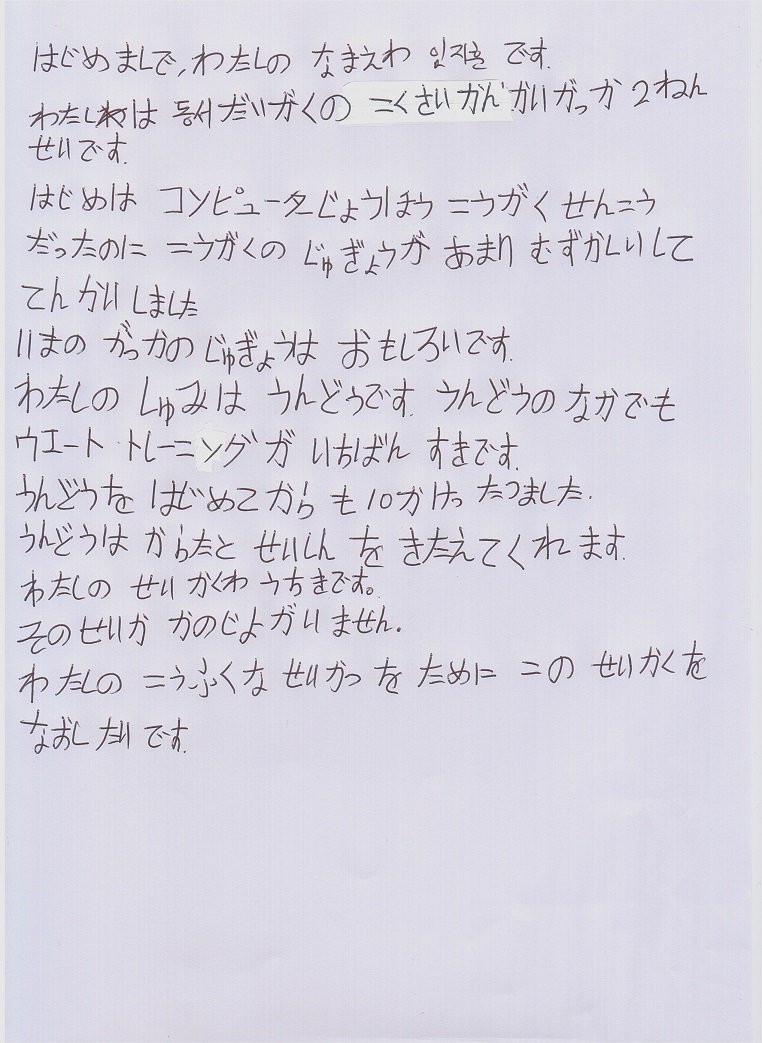 はじめましで,わたしの なまえわ 임지훈 です.
わたしは 동서だいがくの こくさいかんけいがっか 2ねん
せいです.
はじめは コンピュータじょうほう こうがく せんこう
だったのに こうがくの じゅぎょうが あまり むずかしいして
てんかいしました
いまの がっかの じゅぎょうは おもしろいです.
わたしの しゅみは うんどうです. うんどうの なかでも
ウエート トレーニングが いちばん すきです.
うんどうを はじめてから も 10かけっ たつました.
うんどうは からたと せいしん を きたえてくれ ます.
わたしの せいかくわ うちきです。
そのせいか かのじよがいません.
わたしの こうふくな せいかつ を ために この せいかくを
なおし たい です.